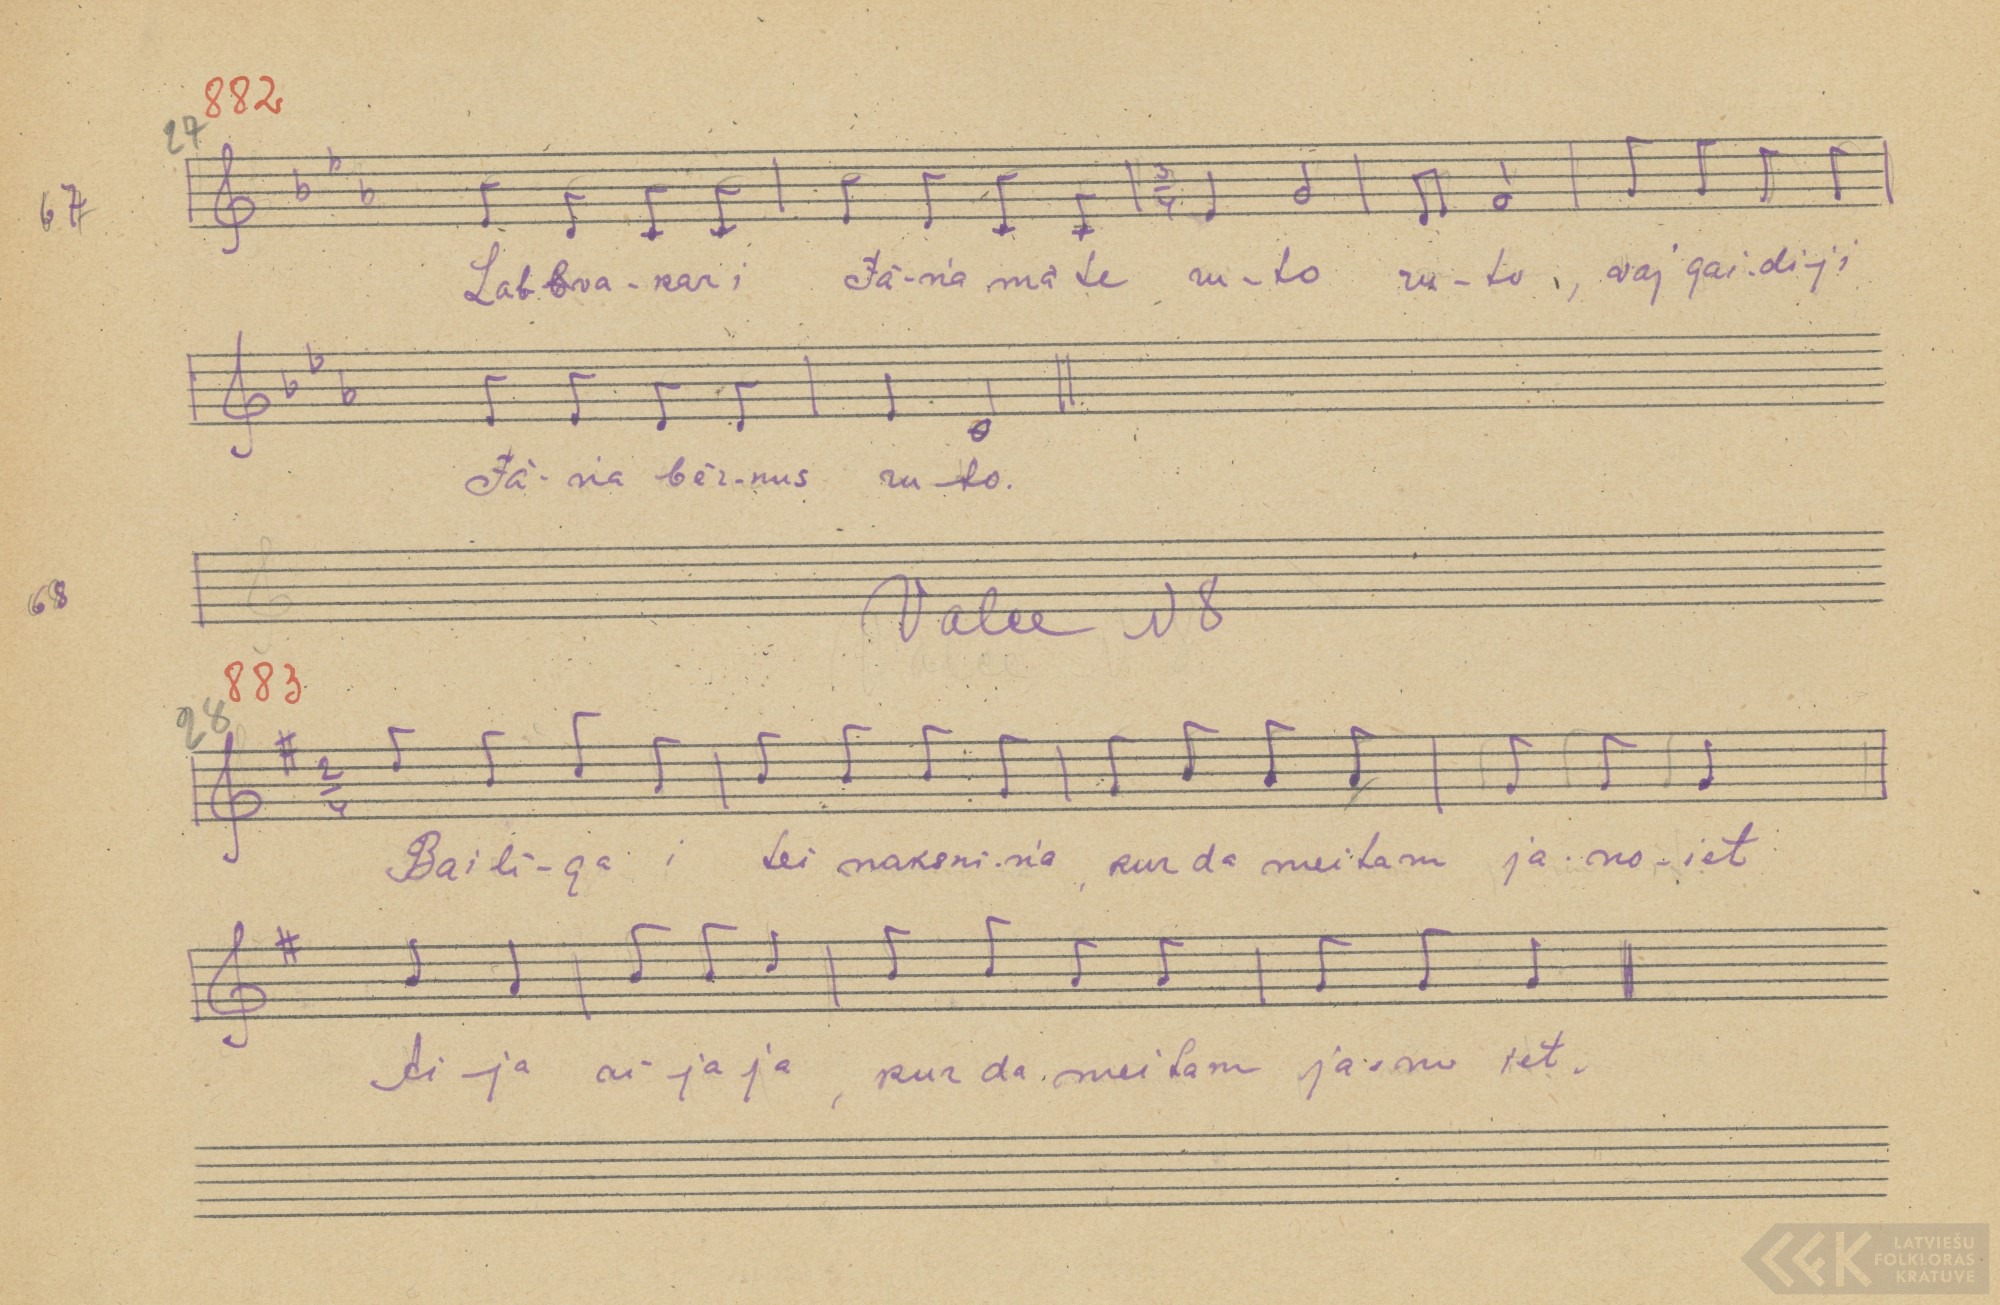 882
27
67
3/4
Labbva-kari Jā-ņa mā te ru-to ru-to, vaj gai-di-ji
Jā-ņa bēr-nus ru-to.
68
Valee N 8
883
28
2/4
Bai li-ga i tei naksni-ņa, kur da meitam ja-no-iet
ri-ja ri-ja ja, kur da meitam ja-no iet.
LATVIEŠU
FOLKLORAS
KRATUVE